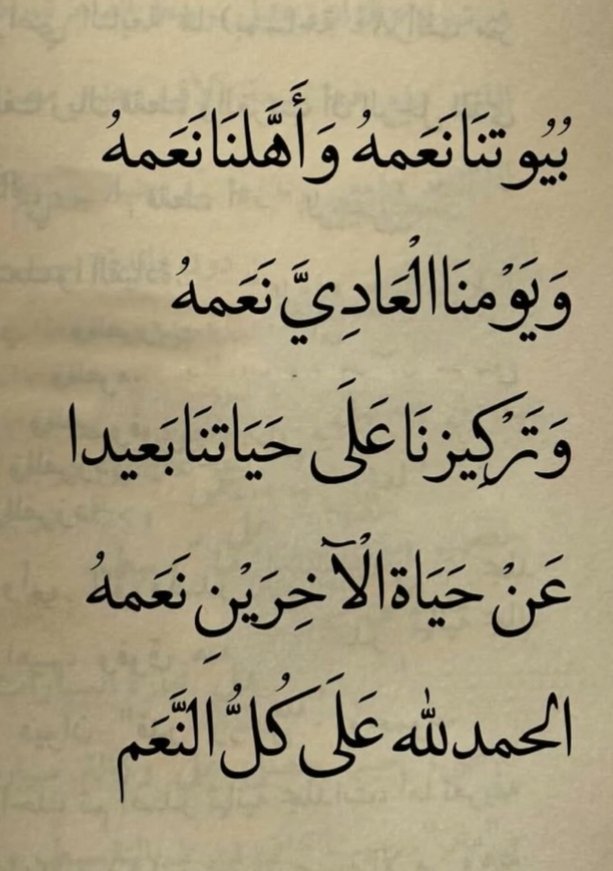 بُيُوتنَا نَعَمهُ وَأَهَّلنَا نَعَمهُ
وَيَوْمنَا الْعَادِيَّ نَعَمهُ
وَتَرْكِيزنَا عَلَى حَيَاتنَا بَعيدا
عَنْ حَيَاة الْآخِرَيْنِ نَعَمهُ
الحمدلله عَلَى كُلُّ النَّعَم